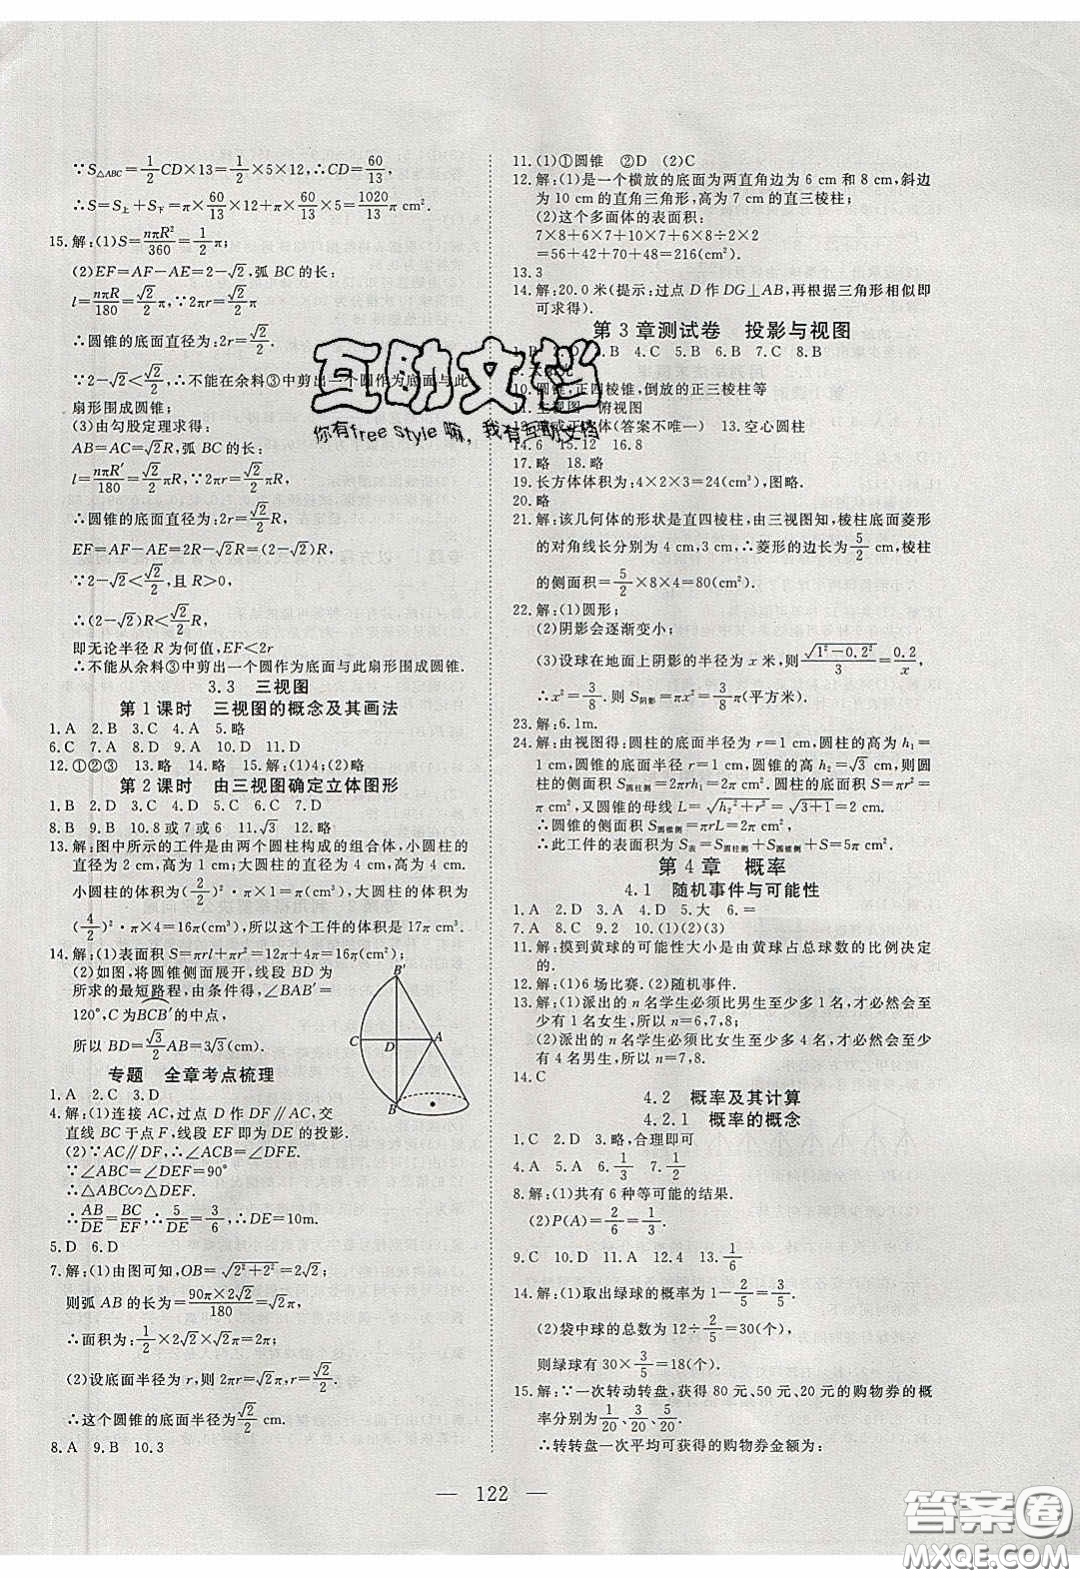 ∵S△ABC=1/2CD×13=1/2×5×12,∴CD=60/13
∴S=S上+S下=π×60/13×12+π×60/13×5=1020/13π cm².
15.解:(1)S=nπR²/360=1/2π;
(2)EF=AF-AE=2-√2,弧BC的长:
l=nπR/180=√2/2π,∵2πr=√2/2π
∴圆锥的底面直径为:2r=√2/2.
∵2-√2<√2/2,∴不能在余料③中剪出一个圆作为底面与此
扇形围成圆锥;
(3)由勾股定理求得:
AB=AC=√2R,弧BC的长:
l=nπR′/180=√2/2πR,∵2πr=√2/2πR,
∴圆锥的底面直径为:2r=√2/2R,
EF=AF-AE=2R-√2R=(2-√2)R,
∵2-√2<√2/2,且R>0,
∴(2-√2)R<√2/2R,
即无论半径R为何值,EF<2r
∴不能从余料③中剪出一个圆作为底面与此扇形围成圆锥.
3.3 三视图
第1课时 三视图的概念及其画法
1.A 2.B 3.C 4.A 5.略
6.C 7.A 8.D 9.A 10.D 11.D
12.①②③ 13.略 14.略 15.解:(1)4;(2)略
第2课时 由三视图确定立体图形
1.B 2.B 3.A 4.D 5.A 6.A 7.D
8.B 9.B 10.8或7或6 11.√3 12.略
13.解:图中所示的工件是由两个圆柱构成的组合体,小圆柱的
直径为2 cm,高为1 cm;大圆柱的直径为4 cm,高为4 cm.
小圆柱的体积为(2/2)²·π×1=π(cm³),大圆柱的体积为
(4/2)²·π×4=16π(cm³),所以这个工件的体积是17π cm³.
14.解:(1)表面积S=πrl+πr²=12π+4π=16π(cm²)
(2)如图,将圆锥侧面展开,线段BD为
所求的最短路程,由条件得,∠BAB′=
120°,C为BCB′的中点,
所以BD=√3/2AB=3√3(cm).
B′
C
D
A
B
专题 全章考点梳理
1.A 2.C 3.D
4.解:(1)连接AC,过点D作DF∥AC,交
直线BC于点F,线段EF即为DE的投影.
(2)∵AC∥DF,∴∠ACB=∠DFE.
∵∠ABC=∠DEF=90°
∴△ABC∽△DEF.
∴AB/DE=BC/EF,∴5/DE=3/6,∴DE=10m.
5.D 6.D
7.解:(1)由图可知,OB=√(2²+2²)=2√2,
则弧AB的长为=90π×2√2/180=√2π,
∴面积为:1/2×2√2×√2π=2π;
(2)设底面半径为r,则2πr=√2π,得:r=√2/2.
∴这个圆锥的底面半径为√2/2 cm.
8.A 9.B 10.3
11.(1)①圆锥 ②D (2)C
12.解:(1)是一个横放的底面为两直角边为6 cm和8 cm,斜边
为10 cm的直角三角形,高为7 cm的直三棱柱;
(2)这个多面体的表面积:
7×8+6×7+10×7+6×8÷2×2
=56+42+70+48=216(cm²).
13.3
14.解:20.0米(提示:过点D作DG⊥AB,再根据三角形相似即
可求得).
第3章测试卷 投影与视图
B 4.C 5.B 6.B 7.C 8.B
10.圆锥,正四棱锥,倒放的正三棱柱等
11.主视图 俯视图
体(答案不唯一) 13.空心圆柱
14.6 15.12 16.8
17.略 18.略
19.长方体体积为:4×2×3=24(cm³),图略.
20.略
21.解:该几何体的形状是直四棱柱,由三视图知,棱柱底面菱形
的对角线长分别为4 cm,3 cm,∴菱形的边长为5/2 cm,棱柱
的侧面积=5/2×8×4=80(cm²).
22.解:(1)圆形;
(2)阴影会逐渐变小;
(3)设球在地面上阴影的半径为x米,则√(1²-0.2²)/3=0.2/x,
∴x²=3/8.则S阴影=πx²=3/8π(平方米).
23.解:6.1m.
24.解:由视图得:圆柱的底面半径为r=1 cm,圆柱的高为h₁=
1 cm,圆锥的底面半径为r=1 cm,圆锥的高为h₁=√3 cm,则
圆柱的侧面积S圆柱侧=2πrh₁=2π cm²,圆柱的底面积S=πr²=
π cm²,又圆锥的母线L=√(h₂²+r²)=√(3+1)=2 cm.
∴圆锥的侧面积S圆锥侧=πrL=2π cm².
∴此工件的表面积为S表=S圆柱侧+S圆锥侧+S=5π cm².
第4章 概率
4.1 随机事件与可能性
1.A 2.D 3.D 4.A 5.大 6.=
7.A 8.C 9.2 10.(1)(2)(3)
11.解:摸到黄球的可能性大小是由黄球占总球数的比例决定
的.
12.解:(1)6场比赛.(2)随机事件.
13.解:(1)派出的n名学生必须比男生至少多1名,才必然会至
少有1名女生,所以n=6,7,8;
(2)派出的n名学生必须比女生至少多4名,才必然会至少
有4名男生,所以n=7,8.
14.C
4.2 概率及其计算
4.2.1 概率的概念
1.C 2.D 3.略,合理即可
4.A 5.A 6.1/3 7.1/4
8.解:(1)共有6种等可能的结果.
(2)P(A)=2/6=1/3.
9.C 10.D 11.A 12.4 13.1/6
14.解:(1)取出绿球的概率为1-2/5=3/5.
(2)袋中球的总数为12÷2/5=30(个),
则绿球有30×3/5=18(个).
15.解:∵一次转动转盘,获得80元、50元、20元的购物券的概
率分别为1/20、3/20、5/20.
∴转转盘一次平均可获得的购物券金额为:
122
互助文档
你有free style嘛,我有互助文档
答案圈
MXQE.COM